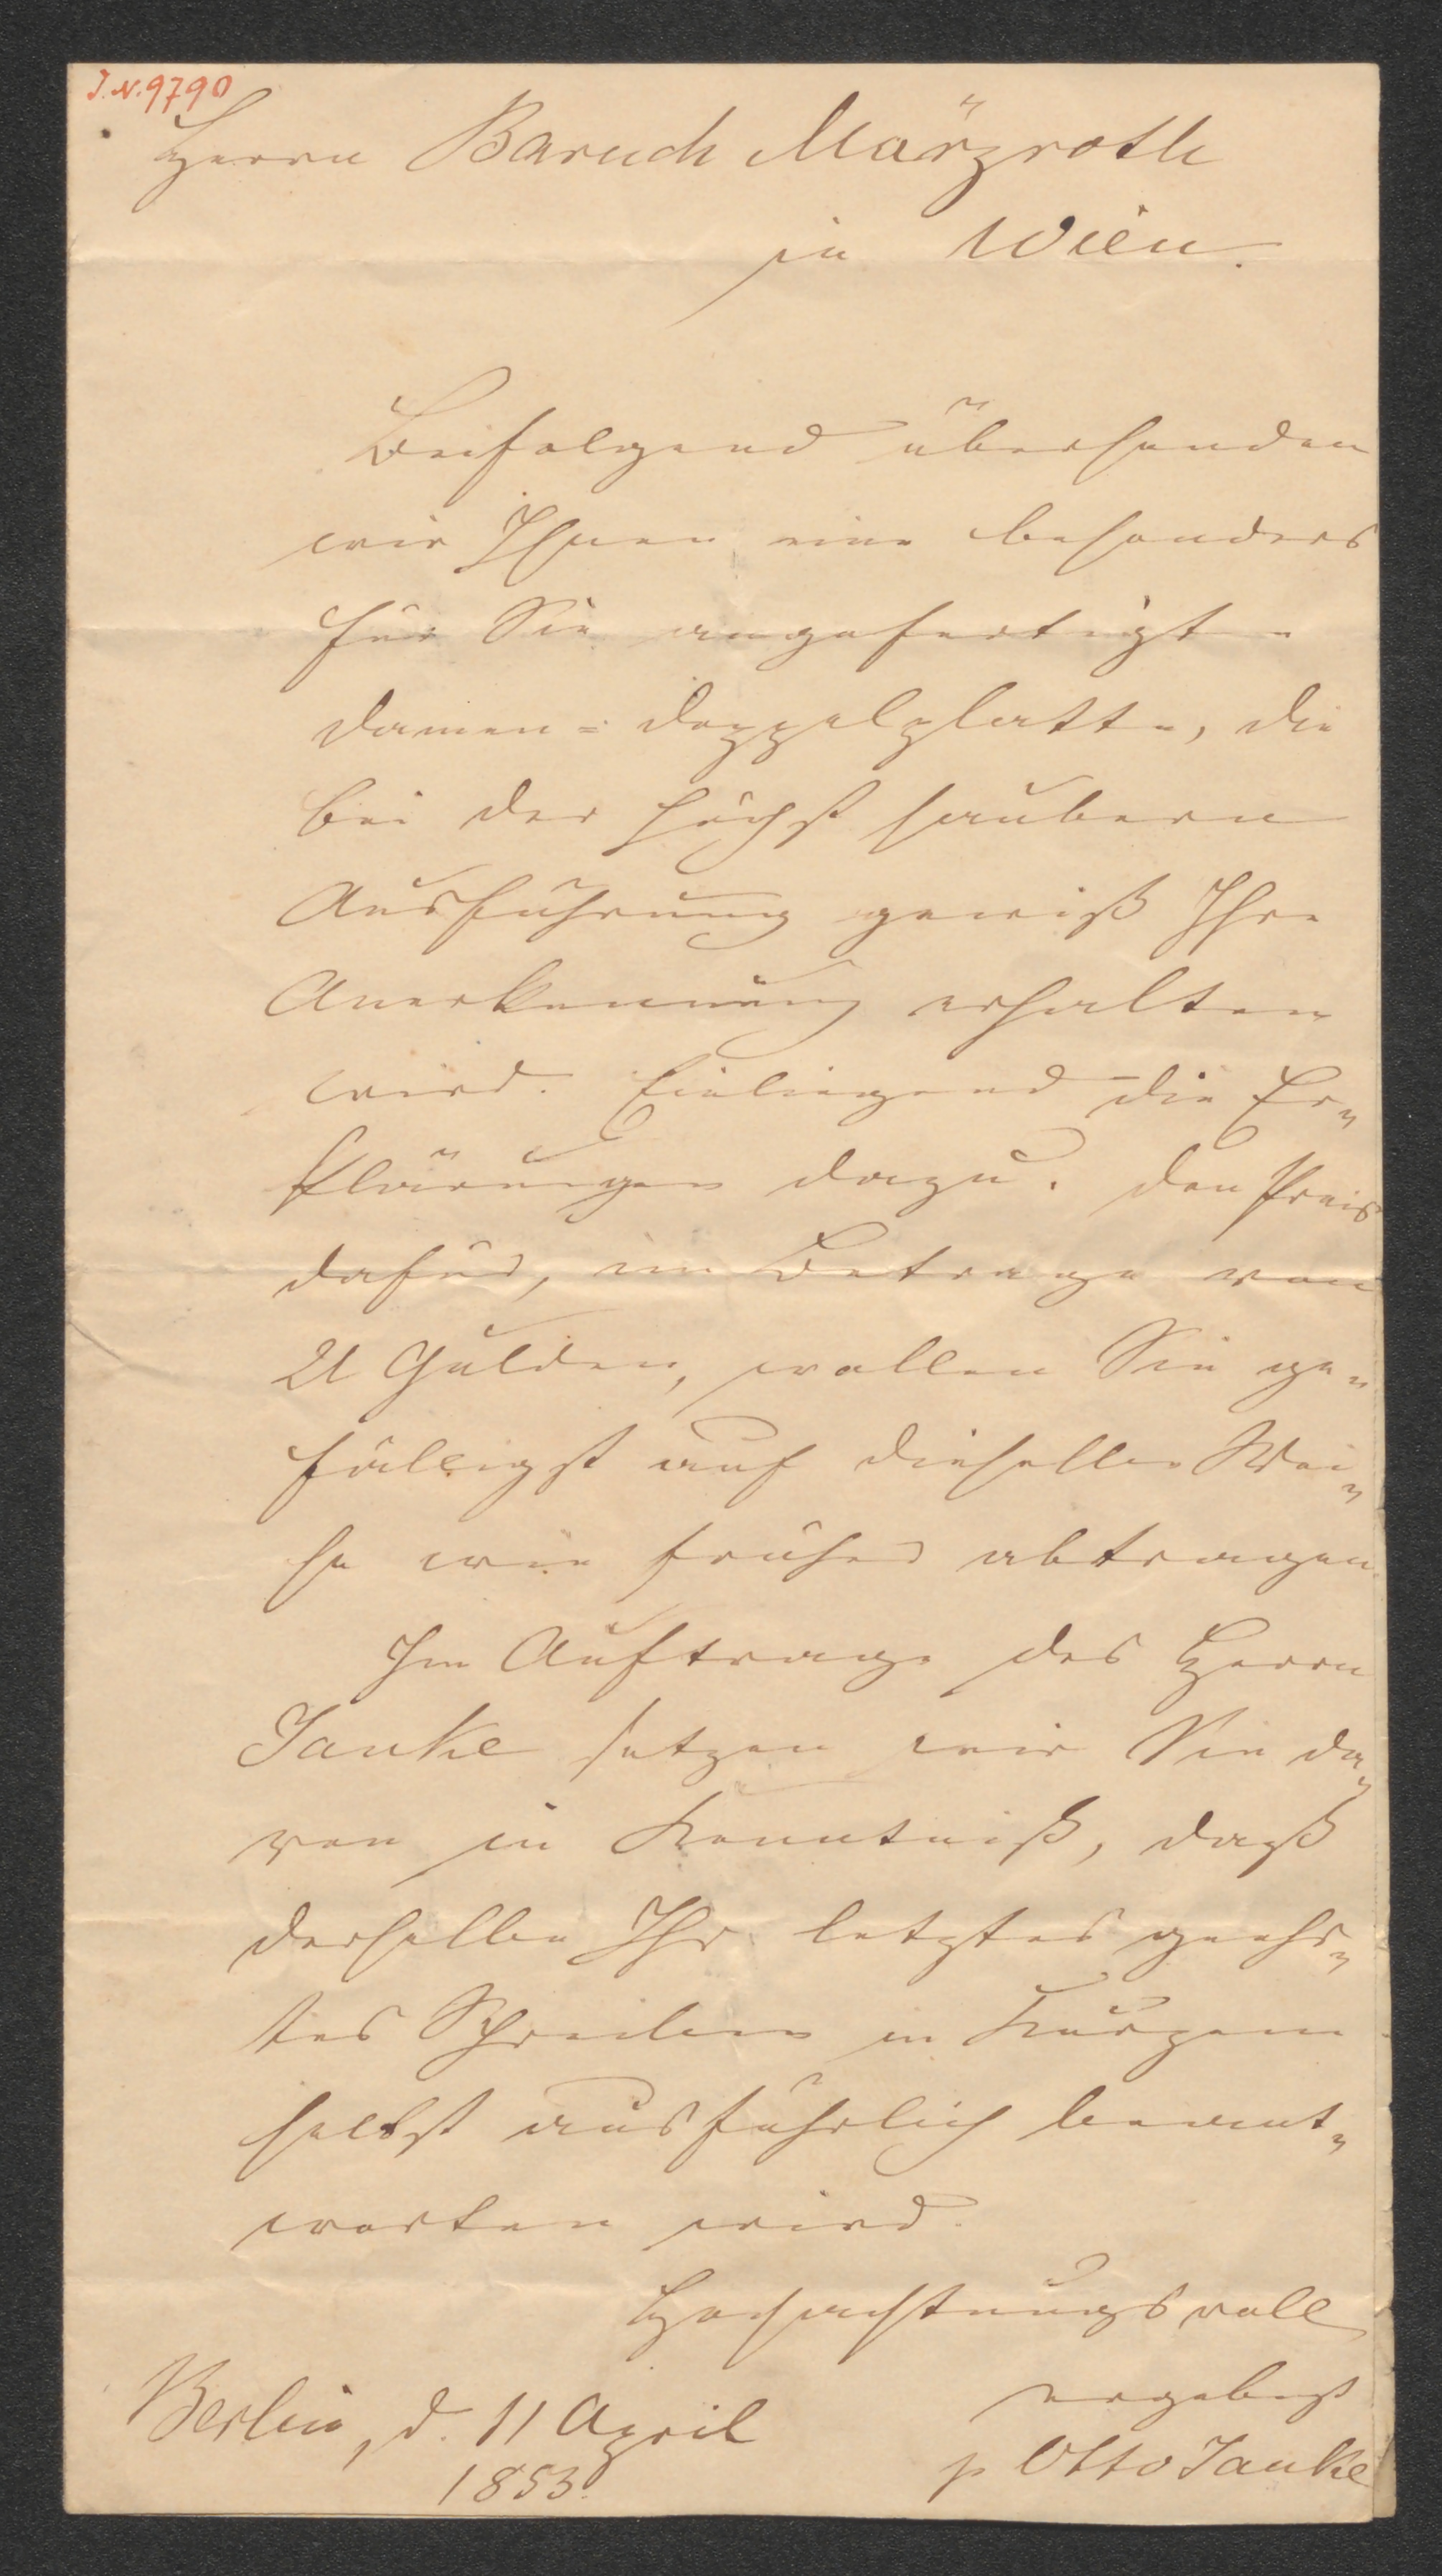 J.N. 9790
Herrn Baruch Märzroth
in Wien.
Beifolgend übersenden
wir Ihnen eine besonders
für Sie angefertigte
Damen-Doppelplatte, die
bei der höchst saubern
Ausführung gewiß Ihre
Anerkennung erhalten
wird. Einliegend die Er-
klärungen dazu. Den Preis
dafür, im Betrage von
21 Gulden, wollen Sie ge-
fälligst auf dieselbe Wei-
se wie früher abtragen.
Im Auftrage des Herrn
Janke setzen wir Sie da-
von in Kenntniß, daß
derselbe Ihr letztes geehr-
tes Schreiben in Kurzem
selbst ausführlich beant-
worten wird.
Hochachtungsvoll
ergebenst
Berlin, d. 11 April
1853.
p Otto Janke